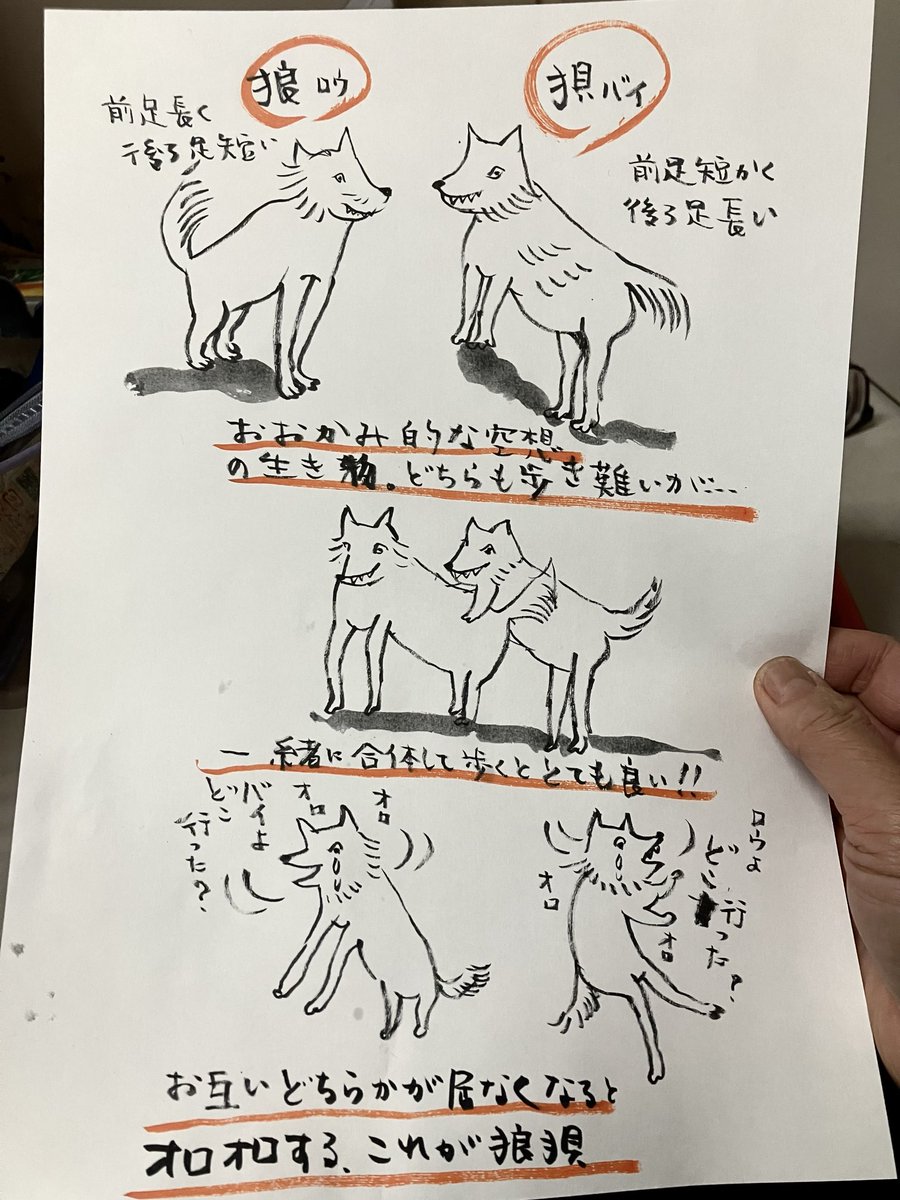 狼 ロウ
前足長く
後ろ足短い
狽 バイ
前足短かく
後ろ足長い
おおかみ的な空想
の生き物。どちらも歩き難いが…
一緒に合体して歩くととても良い!!
バイよ
どこ
行った?
オロ
オロ
ロウよ
どこ行った?
オロ
オロ
お互いどちらかが居なくなると
オロオロする、これが狼狽